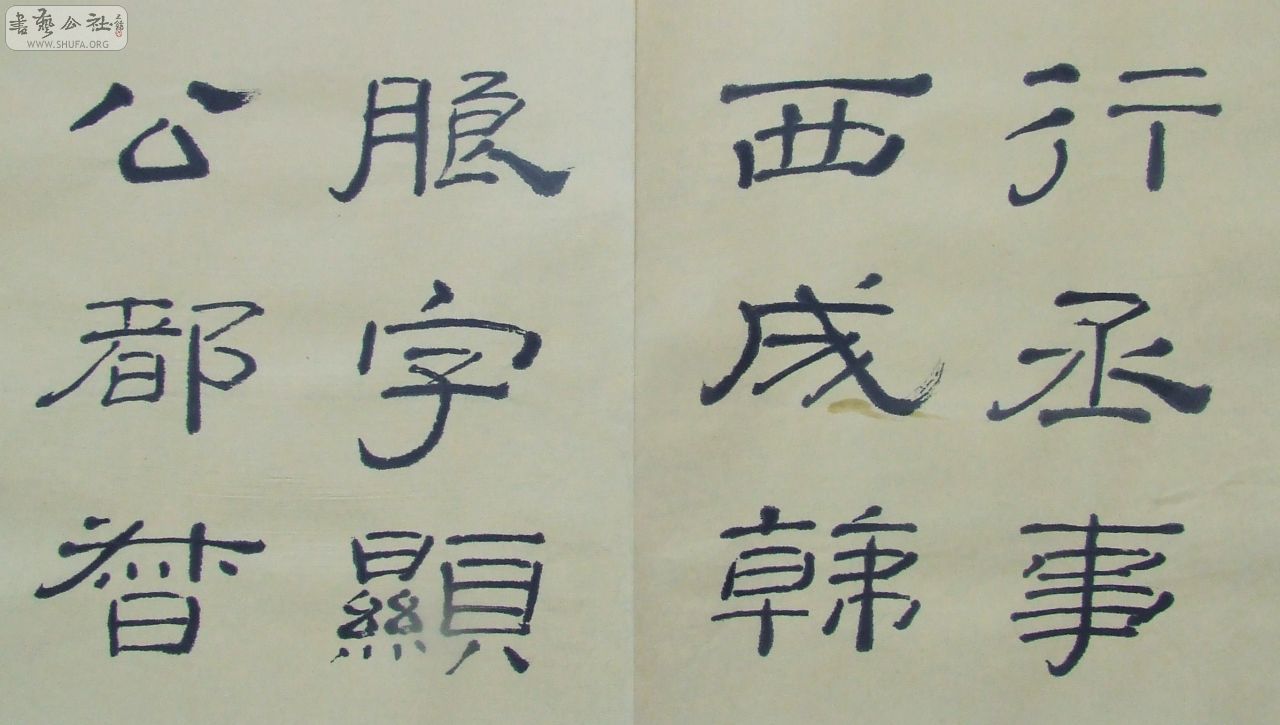 書藝公社
WWW.SHUFA.ORG
行丞事
西成韓
朖字顯
公都督